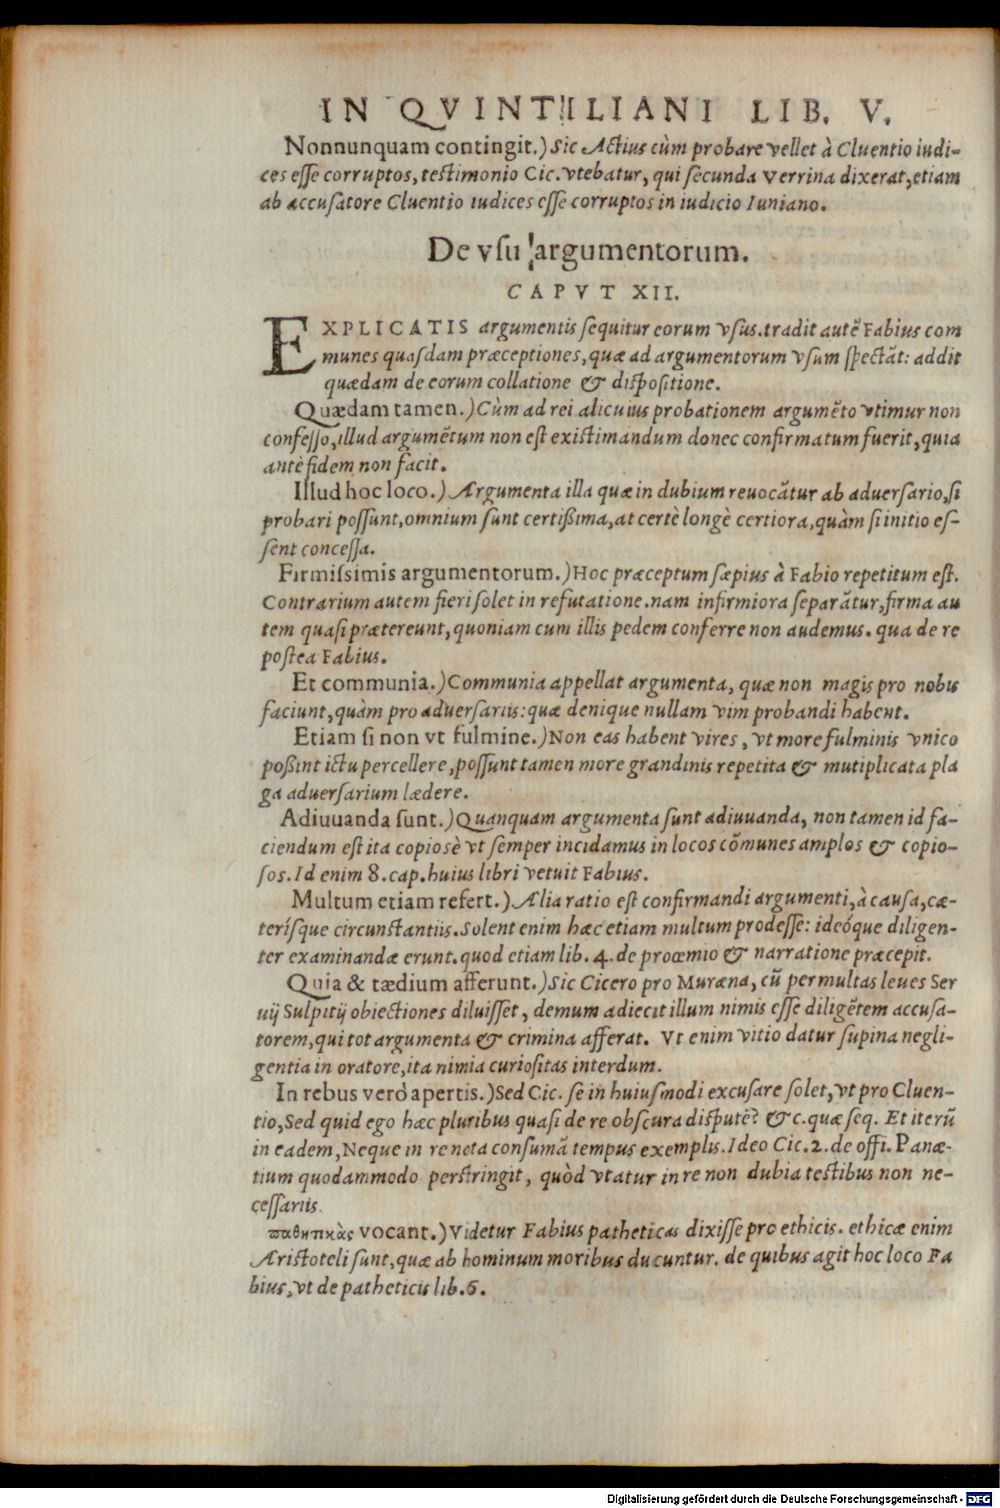 IN QVINTILIANI LIB. V.
Nonnunquam contingit.) Sic Actius cùm probare vellet à Cluentio iudi-
ces esse corruptos, testimonio Cic. vtebatur, qui secunda Verrina dixerat, etiam
ab accusatore Cluentio iudices esse corruptos in iudicio Iuniano.
De vsu argumentorum.
CAPVT XII.
EXPLICATIS argumentis sequitur eorum vsus. tradit autē Fabius com
munes quasdam præceptiones, quæ ad argumentorum vsum spectāt: addit
quædam de eorum collatione & dispositione.
Quædam tamen.) Cùm ad rei alicuius probationem argumēto vtimur non
confesso, illud argumētum non est existimandum donec confirmatum fuerit, quia
antè fidem non facit.
Illud hoc loco.) Argumenta illa quæ in dubium reuocātur ab aduersario, si
probari possunt, omnium sunt certißima, at certè longè certiora, quàm si initio es-
sent concessa.
Firmissimis argumentorum.) Hoc præceptum sæpius à Fabio repetitum est.
Contrarium autem fieri solet in refutatione. nam infirmiora separātur, firma au
tem quasi prætereunt, quoniam cum illis pedem conferre non audemus. qua de re
postea Fabius.
Et communia.) Communia appellat argumenta, quæ non magis pro nobis
faciunt, quàm pro aduersariis: quæ denique nullam vim probandi habent.
Etiam si non vt fulmine.) Non eas habent vires, vt more fulminis vnico
poßint ictu percellere, possunt tamen more grandinis repetita & mutiplicata pla
ga aduersarium lædere.
Adiuuanda sunt.) Quanquam argumenta sunt adiuuanda, non tamen id fa-
ciendum est ita copiosè vt semper incidamus in locos cōmunes amplos & copio-
sos. Id enim 8. cap. huius libri vetuit Fabius.
Multum etiam refert.) Alia ratio est confirmandi argumenti, à causa, cæ-
terísque circunstantiis. Solent enim hæc etiam multum prodesse: ideóque diligen-
ter examinandæ erunt. quod etiam lib. 4. de proœmio & narratione præcepit.
Quia & tædium afferunt.) Sic Cicero pro Muræna, cū permultas leues Ser
uij Sulpitij obiectiones diluisset, demum adiecit illum nimis esse diligētem accusa-
torem, qui tot argumenta & crimina afferat. Vt enim vitio datur supina negli-
gentia in oratore, ita nimia curiositas interdum.
In rebus verò apertis.) Sed Cic. se in huiusmodi excusare solet, vt pro Cluen-
tio, Sed quid ego hæc pluribus quasi de re obscura disputē? &c. quæ seq. Et iterū
in eadem, Neque in re nota consumā tempus exemplis. Ideo Cic. 2. de offi. Panæ-
tium quodammodo perstringit, quòd vtatur in re non dubia testibus non ne-
cessariis.
παθητικὰς vocant.) Videtur Fabius patheticas dixisse pro ethicis. ethicæ enim
Aristoteli sunt, quæ ab hominum moribus ducuntur. de quibus agit hoc loco Fa
bius, vt de patheticis lib. 6.
Digitalisierung gefördert durch die Deutsche Forschungsgemeinschaft - DFG